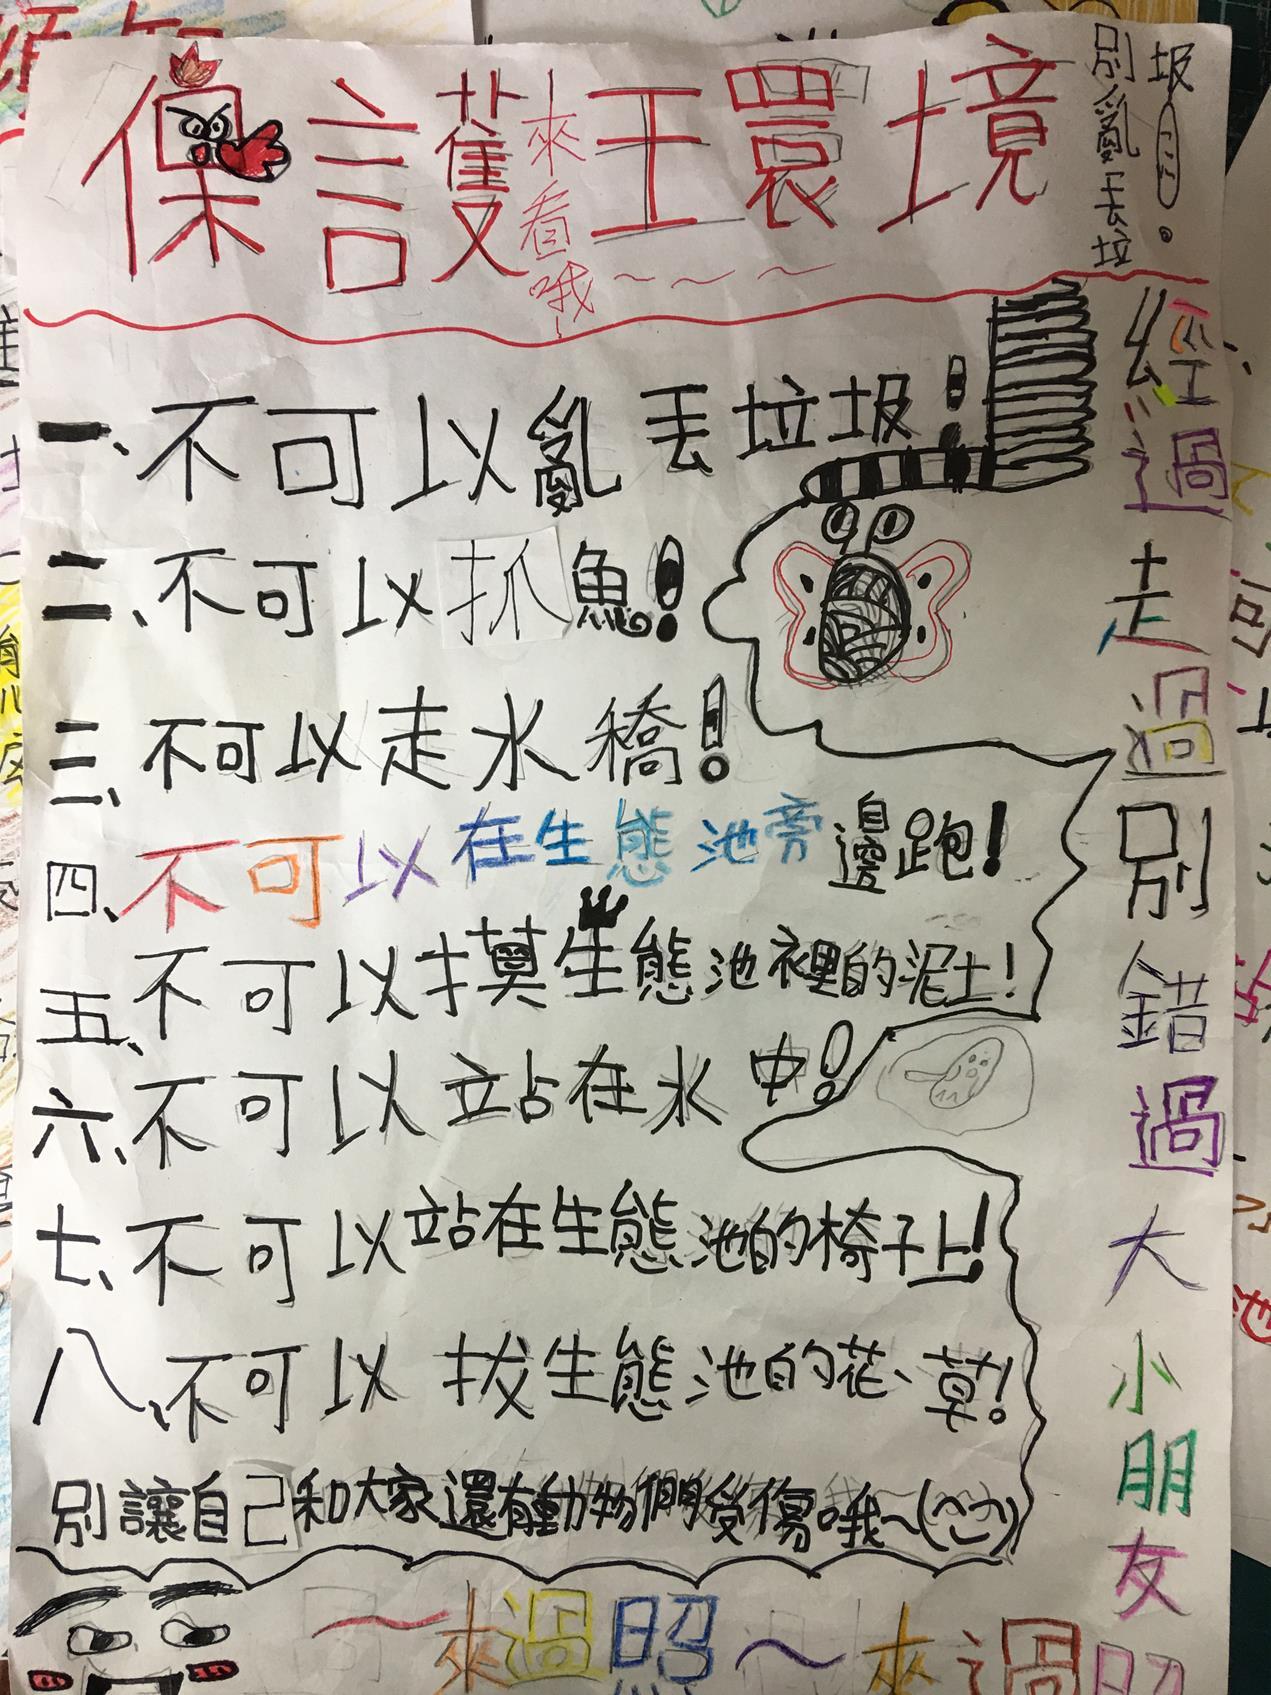 保護環境
來看哦!
別亂丟垃
圾!
一、不可以亂丟垃圾!
二、不可以抓魚!
三、不可以走水橋!
四、不可以在生態池旁邊跑!
五、不可以摸生態池裡的泥土!
六、不可以站在水中!
七、不可以站在生態池的椅子上!
八、不可以拔生態池的花、草!
別讓自己和大家還有動物們受傷哦~(^~^)
經過走過別錯過大小朋友
~來過照~來過